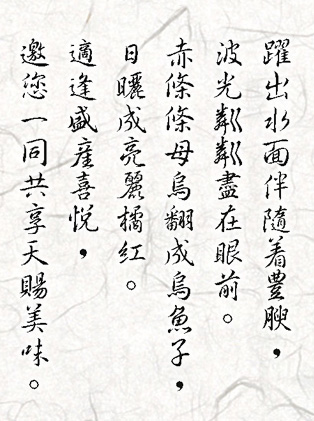 躍出水面伴隨着豐腴，
波光粼粼盡在眼前。
赤條條母烏翻成烏魚子，
日曬成亮麗橘紅。
適逢盛產喜悅，
邀您一同共享天賜美味。